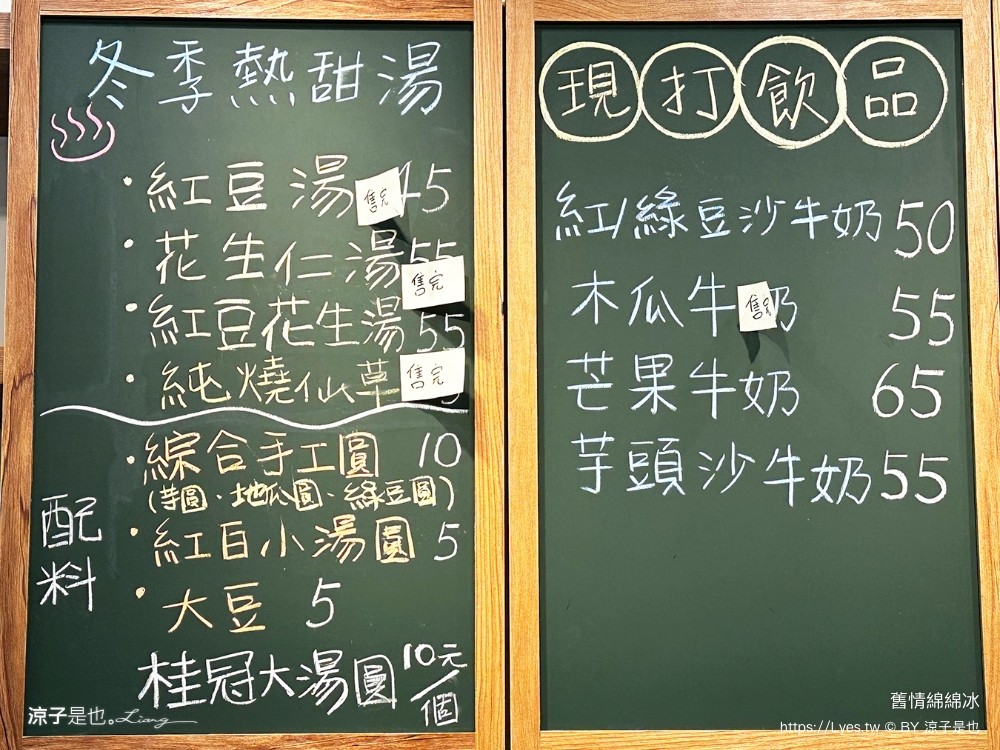 冬季熱甜湯
・紅豆湯 售完 45
・花生仁湯 55
售完
・紅豆花生湯 55
・純燒仙草 售完
・綜合手工圓 10
(芋圓、地瓜圓、綠豆圓)
配料
・紅白小湯圓 5
・大豆 5
桂冠大湯圓 10元/個
現打飲品
紅/綠豆沙牛奶 50
木瓜牛奶 售完 55
芒果牛奶 65
芋頭沙牛奶 55
涼子是也。Liang
舊情綿綿冰
https://Lyes.tw © BY 涼子是也